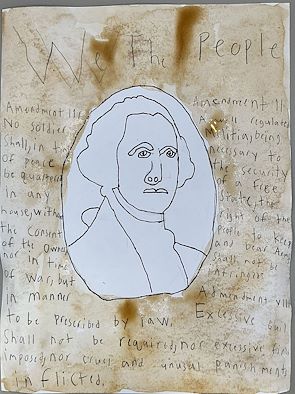 We The People
Amendment III
No soldier
shall, in time
of peace
be quartered
in any
house, without
the consent
of the owner
nor in time
of war, but
in manner
to be prescribed by law.
Amendment II
A well regulated
militia, being
necessary to
the security
of a free
state, the
right of the
people to keep
and bear Arms
shall not be
infringed
Amendment VIII
Excessive bail
shall not be required, nor excessive fines
imposed, nor cruel and unusual punishments
inflicted.